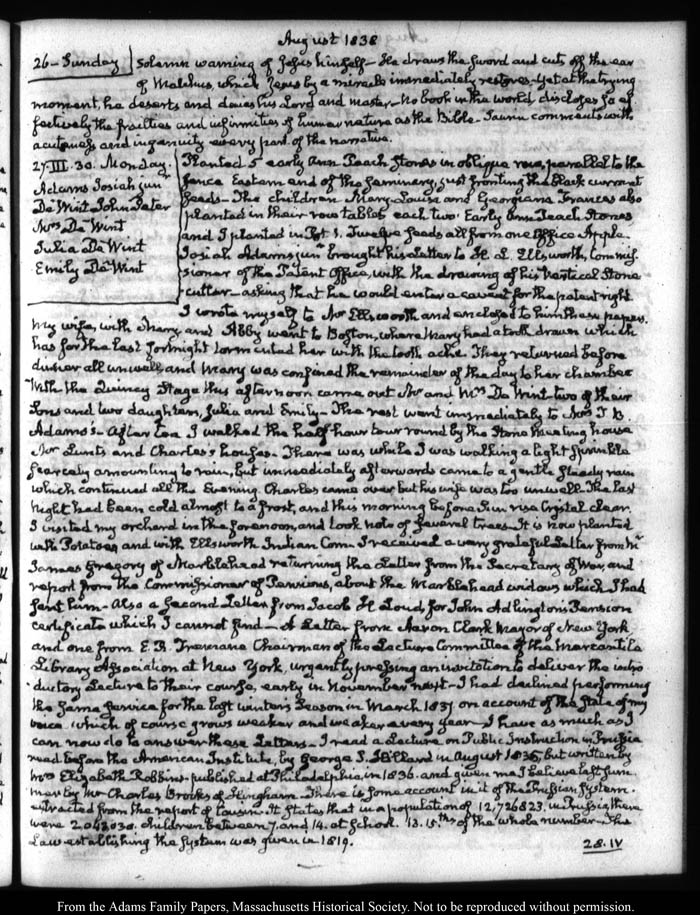 August 1838
26 - Sunday solemn warning of Jesus himself - He draws the sword and cuts off the ear
of Malchus, which Jesus by a miracle immediately restores - Yet at the trying
moment, he deserts and denies his Lord and master - No book in the world discloses so ef
fectively the frailties and infirmities of human nature as the Bible - Saurin comments with
acuteness and ingenuity every part of the narrative.
27. III. 30. Monday.
Adams Josiah jun
De Wint John Peter
Mrs De Wint
Julia De Wint
Emily De Wint
Planted 5 early Ann Peach Stones in oblique row, parallel to the
fence Eastern end of the Seminary, just fronting the black currant
seeds - The children Mary-Louisa and Georgiana Frances also
planted in their row tables each two Early Ann Peach Stones
and I planted in Pot 1. Twelve seeds all from one Office Apple.
Josiah Adams junr brought his Letter to H. L. Ellsworth, Commis-
sioner of the Patent Office, with the drawing of his Vertical Stone
cutter - asking that he would enter a caveat for the patent right
I wrote myself to Mr Ellsworth and enclosed to him these papers.
My wife, with Mary, and Abby went to Boston, where Mary had a tooth drawn which
has for the last fortnight tormented her with the tooth ache. They returned before
dinner all unwell and Mary was confined the remainder of the day to her chamber
With the Quincy Stage this afternoon came out Mr and Mrs De Wint two of their
Sons and two daughters, Julia and Emily - The rest went immediately to Mrs T. B.
Adams's - After tea I walked the half-hour tour round by the Stone Meeting house
Mr Lunts and Charles's houses. There was while I was walking a light sprinkle
scarcely amounting to rain, but immediately afterwards came to a gentle steady rain
which continued all the Evening. Charles came over but his wife was too unwell. The last
Night had been cold almost to a frost, and this morning before Sun rise Crystal clear.
I visited my orchard in the forenoon, and took note of several trees - It is now planted
with Potatoes and with Ellsworth Indian Corn. I received a very grateful Letter from Mr
James Gregory of Marblehead returning the Letter from the Secretary of War, and
report from the Commissioner of Pensions, about the Marblehead widows which I had
sent him - Also a second Letter from Jacob H Loud, for John Adlington's Pension
certificate which I cannot find - A Letter from Aaron Clark Mayor of New York
and one from E. R. Tremain Chairman of the Lecture Committee of the Mercantile
Library Association at New York, urgently pressing an invitation to deliver the intro
ductory Lecture to their course, early in November next - I had declined performing
the same service for the last winters Season in March 1837 on account of the state of my
voice which of course grows weaker and weaker every year - I have as much as I
can now do to answer these Letters - I read a Lecture on Public Instruction in Prussia
read before the American Institute, by George S. Hillard in August 1835, but written by
Mrs Elizabeth Robbins - published at Philadelphia in 1836. and given me I believe last Sum
mer by Mr Charles Brooks of Hingham - There is some account in it of the Prussian System
extracted from the report of Cousin. It states that in a population of 12,726823. in Prussia, there
were 2043030. children between 7. and 14. at school. 13. 15.ths of the whole number - The
Law establishing the System was given in 1819.
28. IV
From the Adams Family Papers, Massachusetts Historical Society. Not to be reproduced without permission.